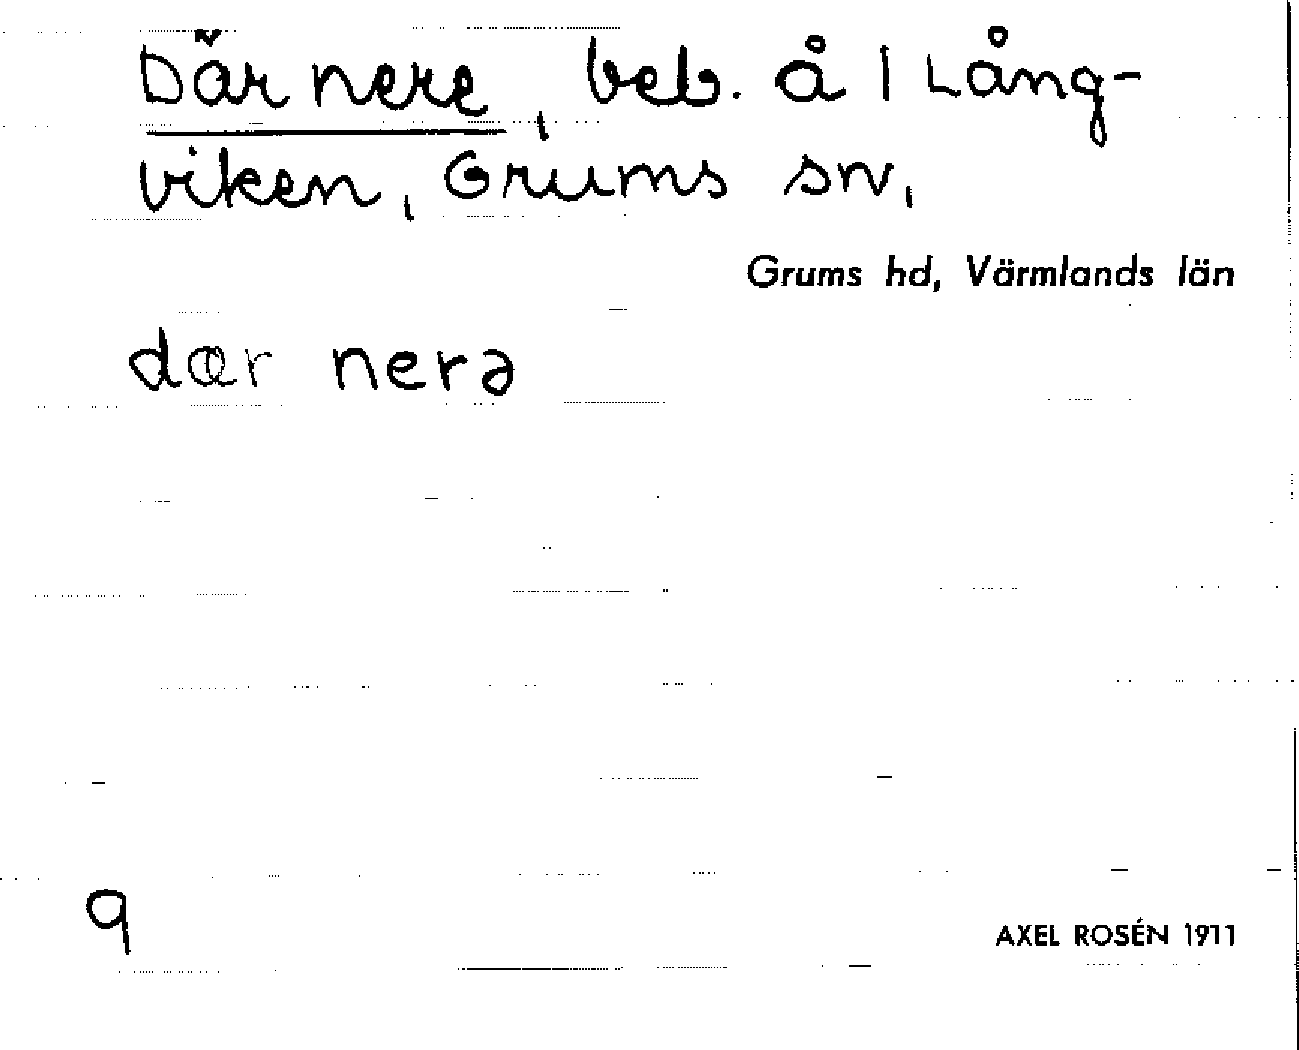 Där nere, beb. å 1 Lång-
viken, Grums sn,
Grums hd, Värmlands län
dær nerə
9
AXEL ROSÉN 1911